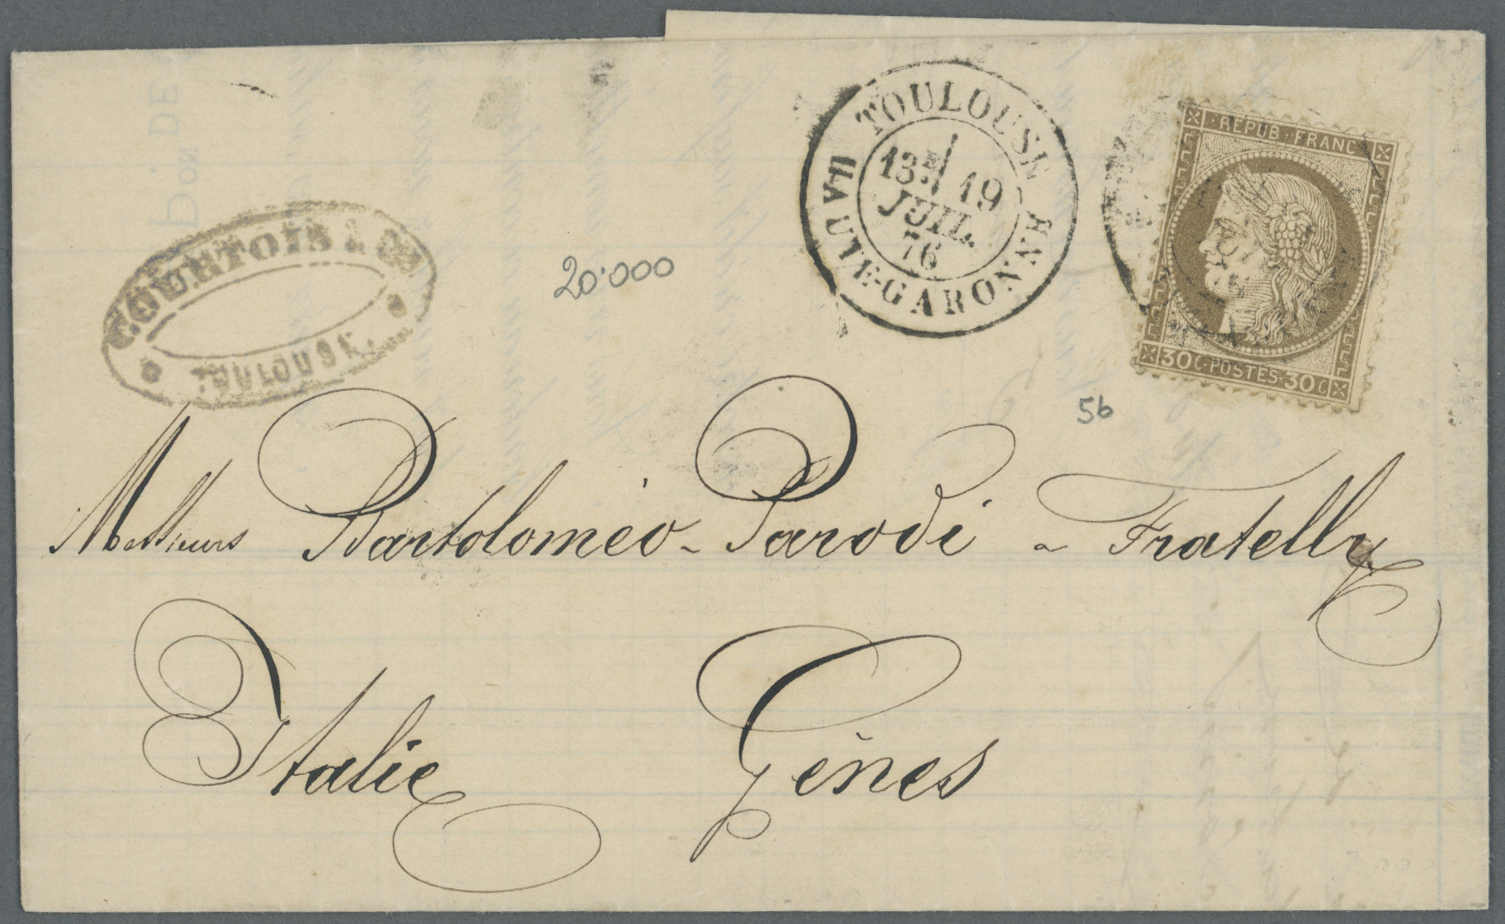 COURTOIS & Cie
TOULOUSE.
20.000
TOULOUSE
13E 19
JUIL.
76
HAUTE-GARONNE
REPUB · FRANC
30 C · POSTES · 30 C
56
Messieurs Bartoloméo - Parodi - Fratelly
Italie Gênes